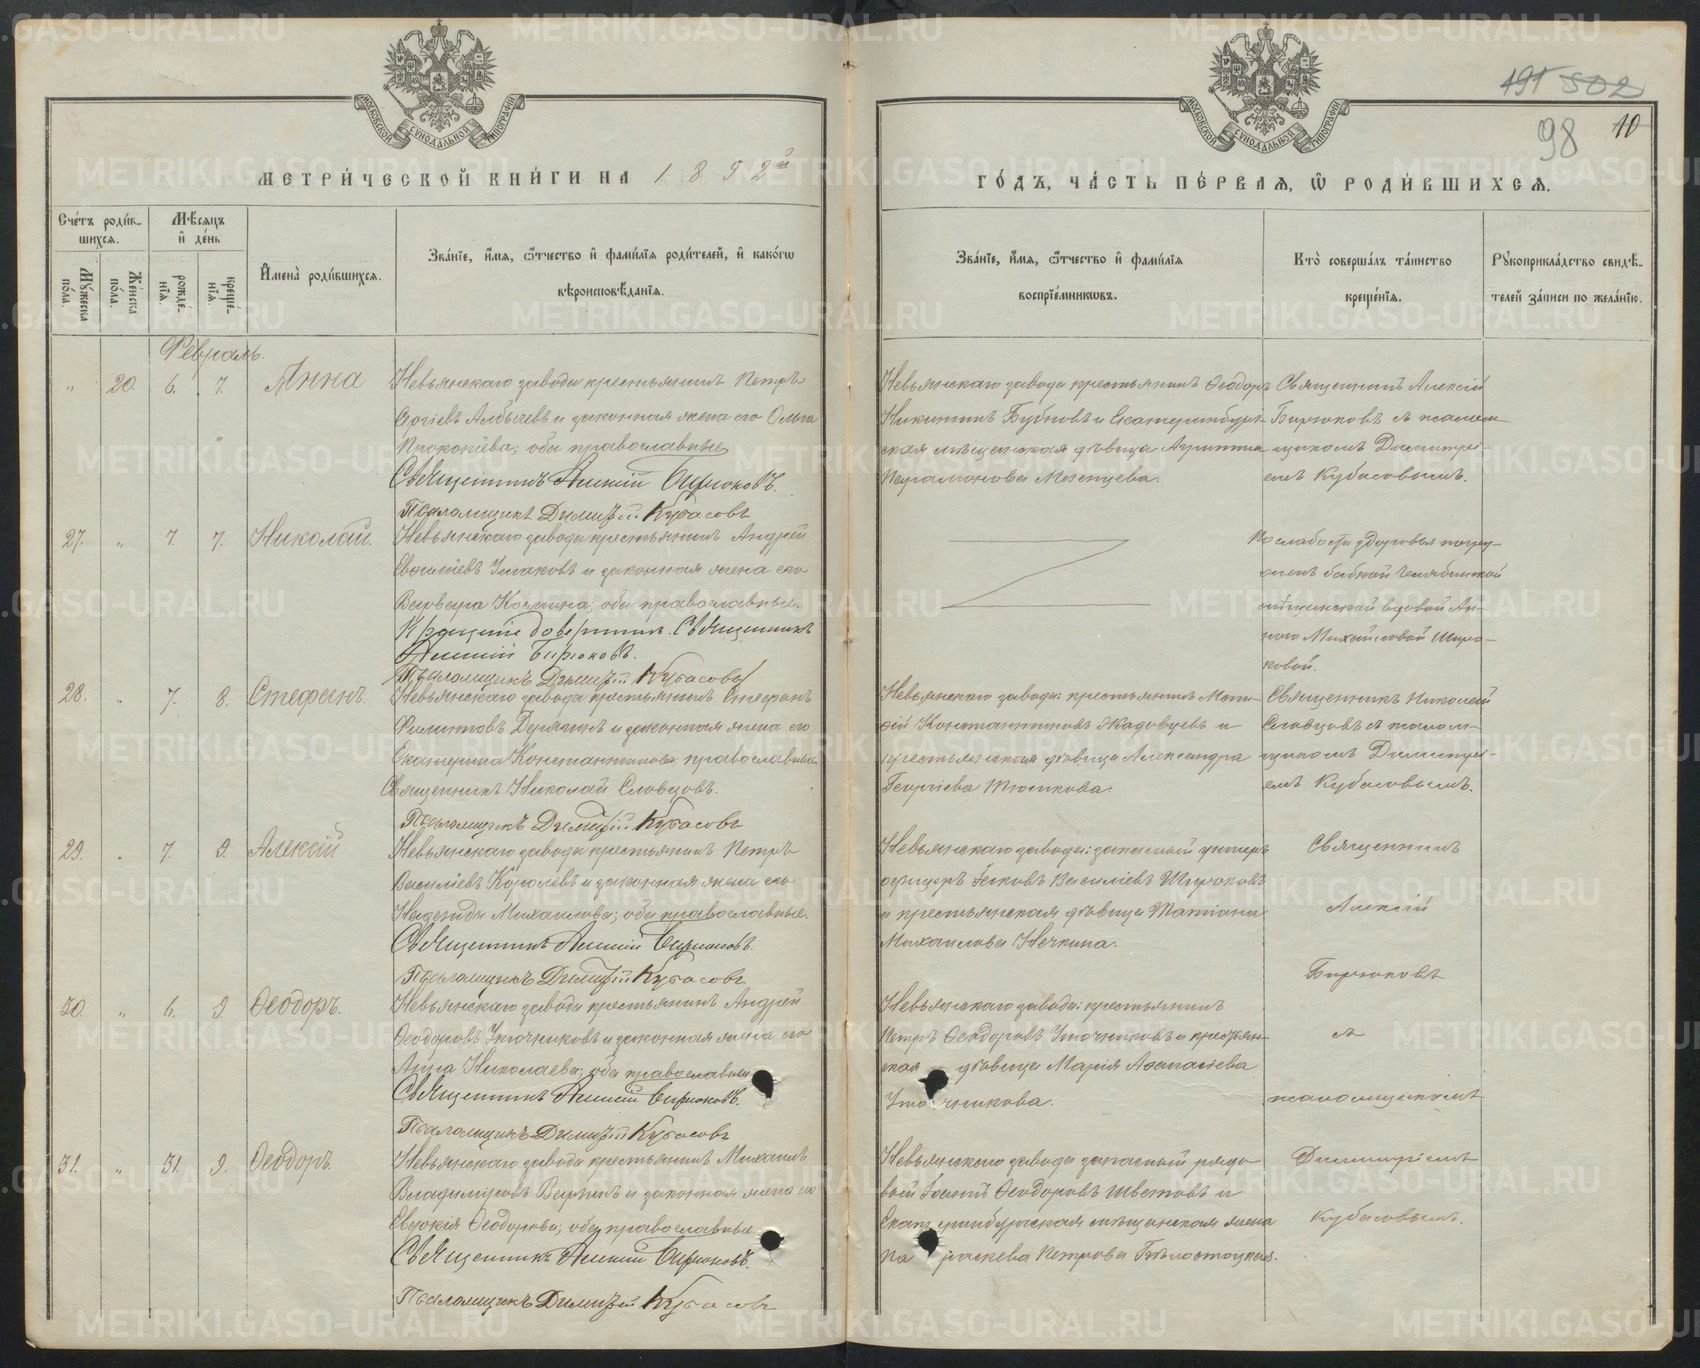 МЕТРИ́ЧЕСКОЙ КНИ́ГИ НА 1892й
ГО́ДЪ, ЧА́СТЬ ПЕ́РВАЯ, Ѿ РОДИ́ВШИХСЯ.
191 502
98 10
Сче́тъ роди́в-
шихся.
Мѣ́сяцъ
и̂ де́нь
Мꙋ́жеска
по́ла.
Же́нска
по́ла.
рожде́-
нїя.
креще́-
нїя.
И҆мена̀ роди́вшихся.
Зва́нїе, и҆́мя, ѻ҆́тчество и҆ фами́лїя роди́телей, и҆ како́гѡ
вѣроисповѣ́данїя.
Зва́нїе, и҆́мя, ѻ҆́тчество и҆ фами́лїя
воспрїе́мникѡвъ.
Кто̀ соверша́лъ та́инство
креще́нїя.
Рꙋкоприкла́дство свидѣ́-
телей за́писи по жела́нїю.
Февраль.
" 20. 6. 7. Анна
Невьянскаго завода крестьянинъ Петръ
Сергіевъ и законная жена его Ольга
Прокопіева, оба православные
Священникъ Алексій Бирюковъ.
Псаломщикъ Димитрій Кубасовъ
Невьянскаго завода крестьянинъ Ѳеодоръ
Никитинъ Бубновъ и Екатеринбург-
ская мѣщанская дѣвица
Парамонова
Священникъ Алексій
Бирюковъ съ псалом-
щикомъ Димитрі-
емъ Кубасовымъ.
27. " 7. 7. Николай.
Невьянскаго завода крестьянинъ Андрей
и законная жена его
Варвара Космина, оба православные.
Крещеніе Священникъ
Алексій Бирюковъ.
Псаломщикъ Димитрій Кубасовъ
По слабости здоровья погру-
женъ бабкой Челябинской
мѣщанской вдовой Ан-
ною Михайловой Широ-
ковой.
28. " 7. 8. Стефанъ.
Невьянскаго завода крестьянинъ Стефанъ
Филиповъ и законная жена его
Екатерина Константинова, православные
Священникъ Николай Словцовъ.
Псаломщикъ Димитрій Кубасовъ
Невьянскаго завода: крестьянинъ Мат-
ѳій Константиновъ и
крестьянская дѣвица Александра
Георгіева
Священникъ Николай
Словцовъ съ псалом-
щикомъ Димитрі-
емъ Кубасовымъ.
29. " 7. 9. Алексій
Невьянскаго завода крестьянинъ Петръ
Василіевъ Королевъ и законная жена его
Надежда Михаилова, оба православные.
Священникъ Алексій Бирюковъ.
Псаломщикъ Димитрій Кубасовъ
Невьянскаго завода: запасный унтеръ
офицеръ Іаковъ Василіевъ Широковъ
и крестьянская дѣвица Татіана
Михаилова Нечкина.
Священникъ
Алексій
Бирюковъ
съ
псаломщикомъ
Димитріемъ
Кубасовымъ.
30. " 6. 9. Ѳеодоръ.
Невьянскаго завода крестьянинъ Андрей
Ѳеодоровъ и законная жена его
Анна Николаева, оба православные
Священникъ Алексій Бирюковъ.
Псаломщикъ Димитрій Кубасовъ
Невьянскаго завода: крестьянинъ
Петръ Ѳеодоровъ и крестьян-
ская дѣвица Марія Аѳанасіева
31. " 31. 9. Ѳеодоръ.
Невьянскаго завода крестьянинъ Михаилъ
Владиміровъ и законная жена его
Евдокія Ѳеодорова, оба православные
Священникъ Алексій Бирюковъ.
Псаломщикъ Димитрій Кубасовъ
Невьянскаго завода запасный рядо-
вой Ѳеодоровъ Шветовъ и
Екатеринбургская мѣщанская жена
Параскева Петрова
METRIKI.GASO-URAL.RU